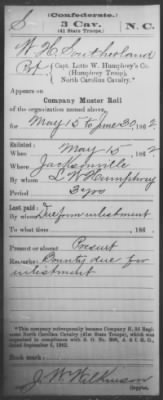 (Confederate.)
S 3 Cav. N. C.
(41 State Troops.)
W H Southerland
Pvt, Capt. Lotte W. Humphrey's Co.
(Humphrey Troop),
North Carolina Cavalry.*
Appears on
Company Muster Roll
of the organization named above,
for May 15 to June 30, 1862
Enlisted:
When May 15, 1862
Where Jacksonville
By whom L W Humphrey
Period 3 yrs
Last paid:
By whom Due from enlistment
To what time , 186
Present or absent Present
Remarks: Bounty due for
enlistment
*This company subsequently became Company H, 3d Regiment
North Carolina Cavalry (41st State Troops), which was
organized in compliance with S. O. No.
dated September 3, 1862.
Book mark:
J. W. Wilkinson
Copyist.